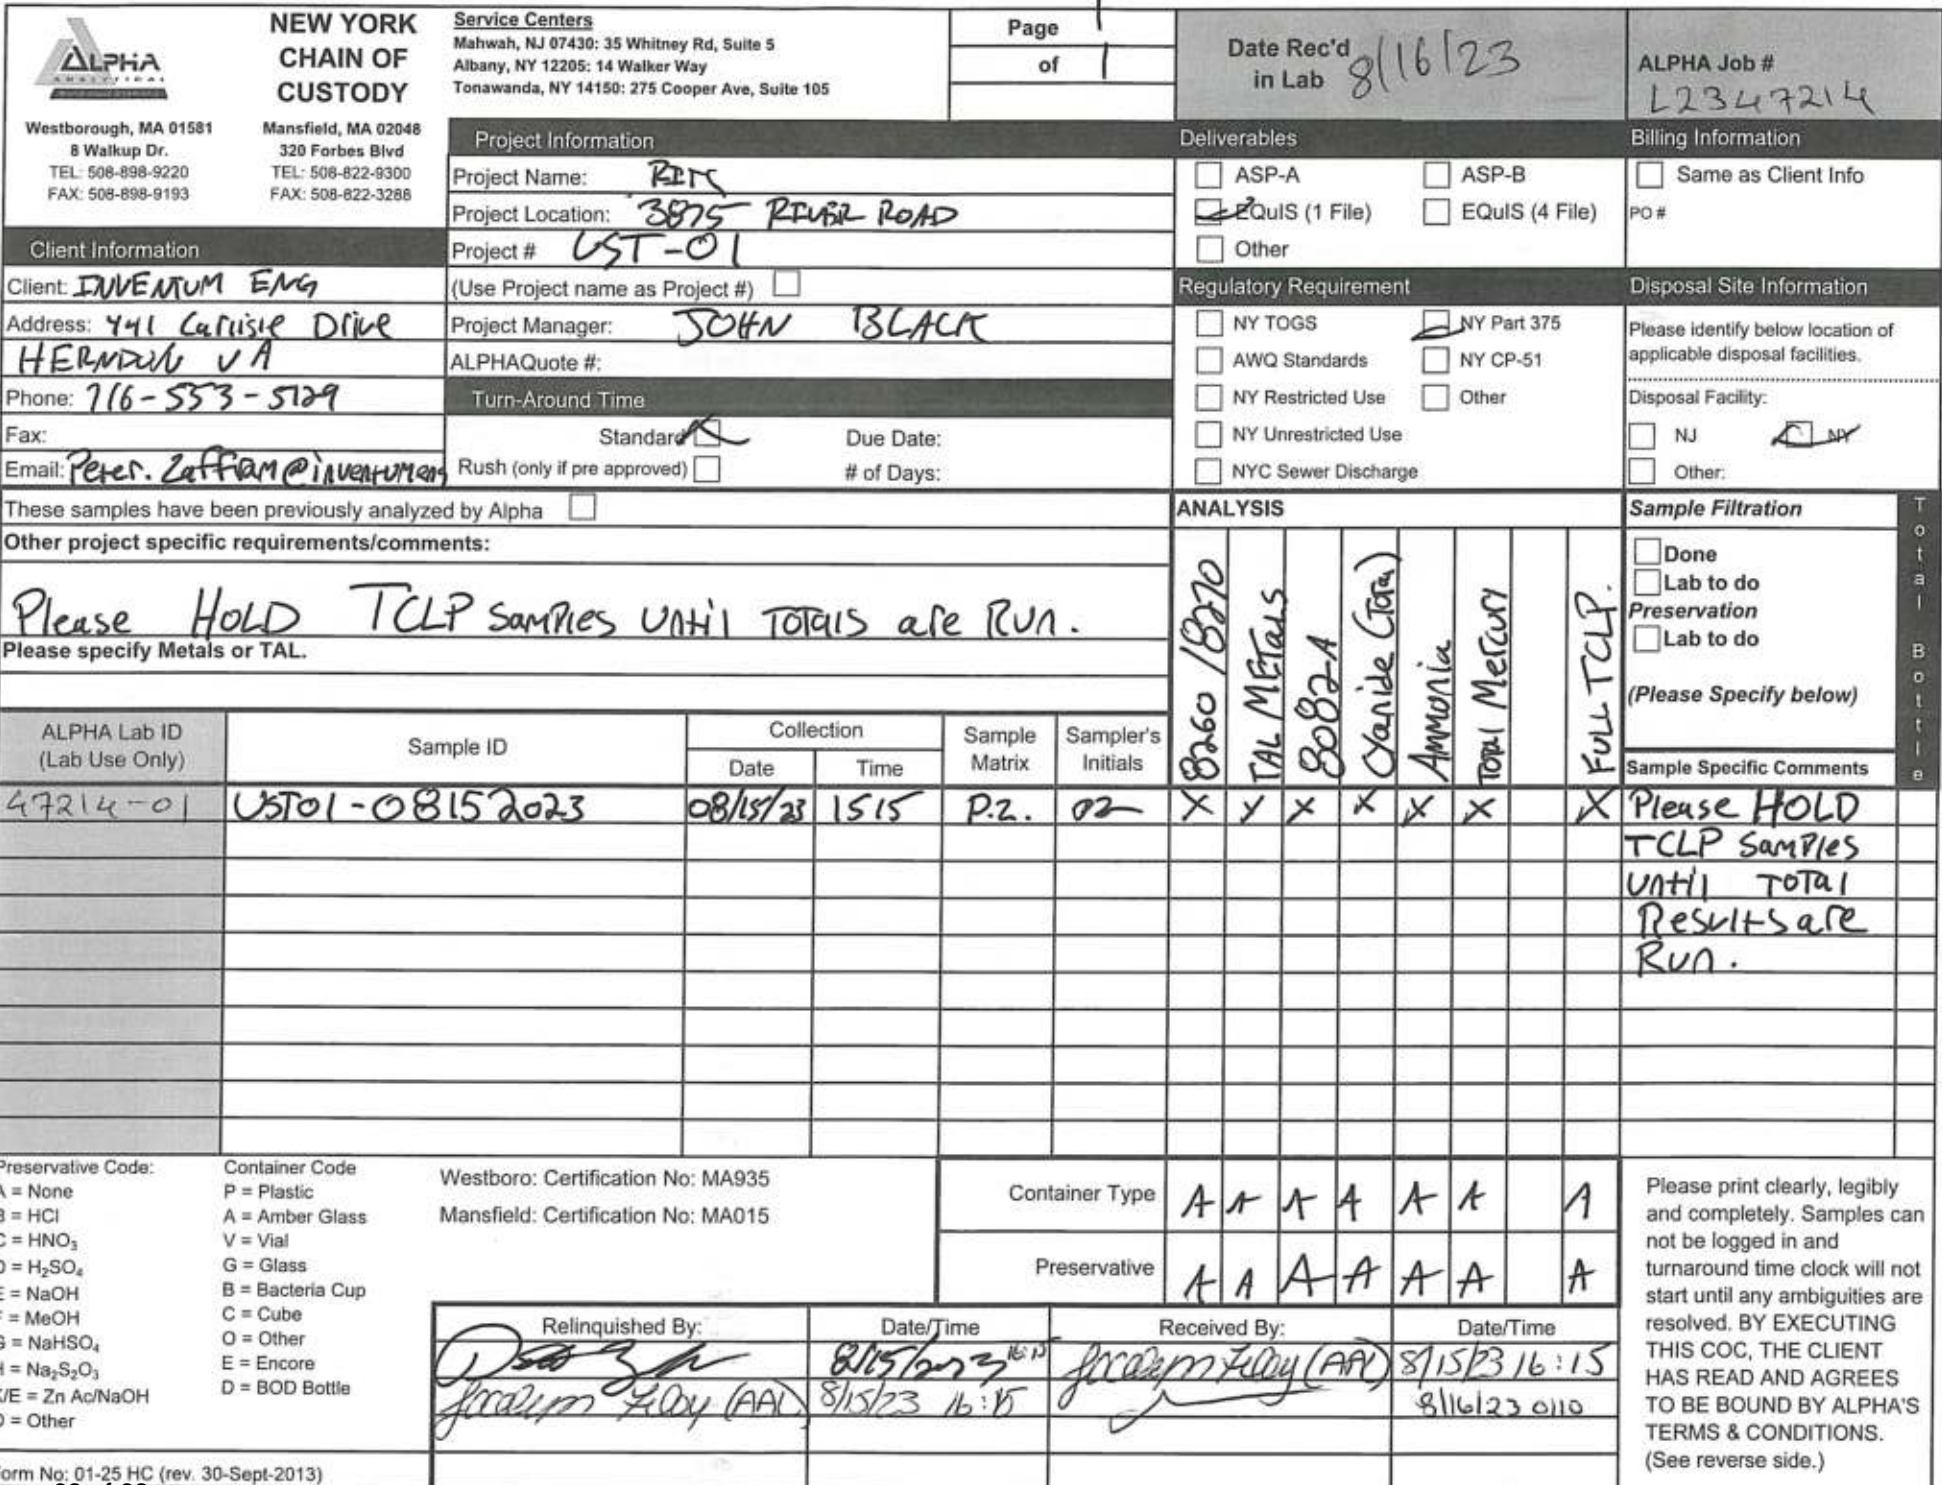 ALPHA
ANALYTICAL
Westborough, MA 01581
8 Walkup Dr.
TEL: 508-898-9220
FAX: 508-898-9193
NEW YORK
CHAIN OF
CUSTODY
Mansfield, MA 02048
320 Forbes Blvd
TEL: 508-822-9300
FAX: 508-822-3288
Service Centers
Mahwah, NJ 07430: 35 Whitney Rd, Suite 5
Albany, NY 12205: 14 Walker Way
Tonawanda, NY 14150: 275 Cooper Ave, Suite 105
Page 1
of 1
Date Rec'd
in Lab 8/16/23
ALPHA Job #
L2347214
Client Information
Client: INVENTUM ENG
Address: 441 Carlisle Drive
HERNDON VA
Phone: 716-553-5129
Fax:
Email: Peter.
Project Information
Project Name:
Project Location: 3875 RIVER ROAD
Project # UST-01
(Use Project name as Project #)
Project Manager: JOHN BLACK
ALPHAQuote #:
Turn-Around Time
Standard
Due Date:
Rush (only if pre approved)
# of Days:
Deliverables
ASP-A
ASP-B
EQuIS (1 File)
EQuIS (4 File)
Other
Regulatory Requirement
NY TOGS
NY Part 375
AWQ Standards
NY CP-51
NY Restricted Use
Other
NY Unrestricted Use
NYC Sewer Discharge
Billing Information
Same as Client Info
PO #
Disposal Site Information
Please identify below location of
applicable disposal facilities.
Disposal Facility:
NJ
NY
Other:
These samples have been previously analyzed by Alpha
Other project specific requirements/comments:
Please HOLD TCLP samples until TOTALS are RUN.
Please specify Metals or TAL.
ANALYSIS
8260/8270
TAL METALS
8082-A
Cyanide (Total)
Ammonia
Total Mercury
FULL TCLP.
Sample Filtration
Done
Lab to do
Preservation
Lab to do
(Please Specify below)
Sample Specific Comments
Total Bottle
ALPHA Lab ID
(Lab Use Only)
Sample ID
Collection
Date
Time
Sample
Matrix
Sampler's
Initials
47214-01 UST01-08152023 08/15/23 1515 P.Z. X X X X X X X Please HOLD
TCLP Samples
until TOTAL
Results are
Run.
Preservative Code:
A = None
B = HCl
C = HNO₃
D = H₂SO₄
E = NaOH
F = MeOH
G = NaHSO₄
H = Na₂S₂O₃
K/E = Zn Ac/NaOH
O = Other
Container Code
P = Plastic
A = Amber Glass
V = Vial
G = Glass
B = Bacteria Cup
C = Cube
O = Other
E = Encore
D = BOD Bottle
Westboro: Certification No: MA935
Mansfield: Certification No: MA015
Container Type A A A A A A A
Preservative A A A A A A A
Relinquished By:
Date/Time
Received By:
Date/Time
8/15/2023 (AAL) 8/15/23 16:15
(AAL) 8/15/23 16:15 8/16/23 0110
Please print clearly, legibly
and completely. Samples can
not be logged in and
turnaround time clock will not
start until any ambiguities are
resolved. BY EXECUTING
THIS COC, THE CLIENT
HAS READ AND AGREES
TO BE BOUND BY ALPHA'S
TERMS & CONDITIONS.
(See reverse side.)
Form No: 01-25 HC (rev. 30-Sept-2013)